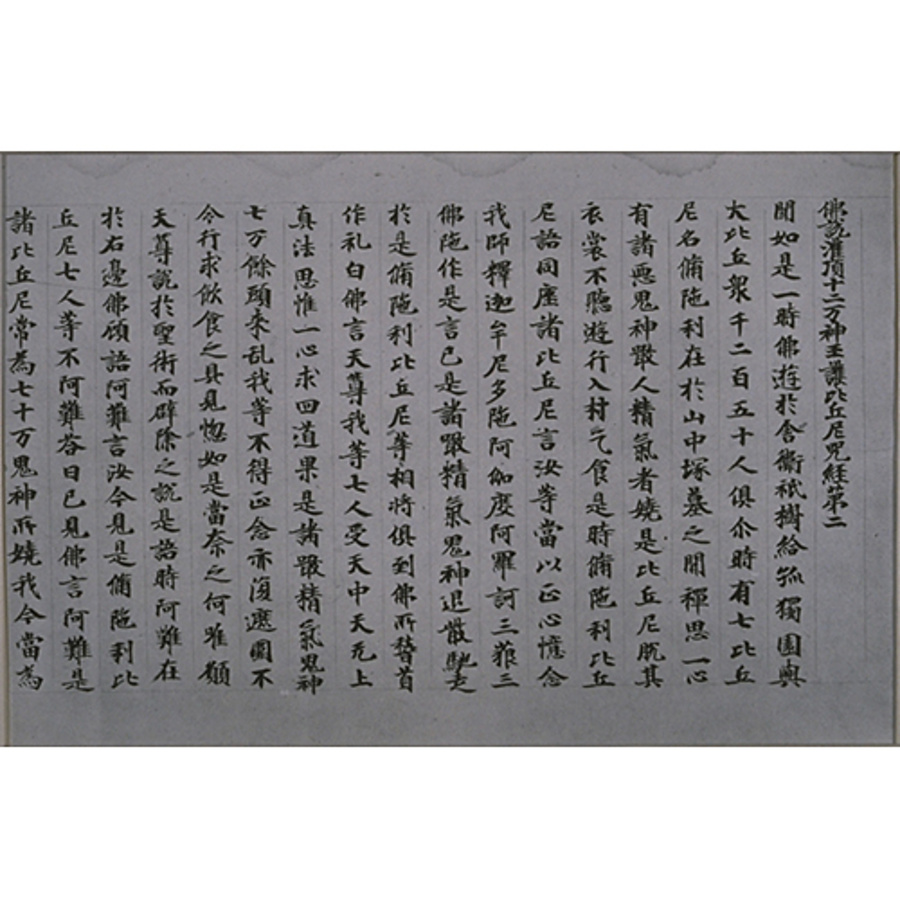 佛說灌頂十二万神王護比丘尼咒経第二
聞如是一時佛遊於舍衞祇樹給孤獨園與
大比丘衆千二百五十人俱尒時有七比丘
尼名脩陁利在於山中塚墓之間禪思一心
有諸惡鬼神噉人精氣者嬈是比丘尼脱其
衣裳不聽遊行入村乞食是時脩陁利比丘
尼語同座諸比丘尼言汝等當以正心憶念
我師釋迦牟尼多陁阿伽度阿羅訶三藐三
佛陁作是言已是諸噉精氣鬼神退散馳走
於是脩陁利比丘尼等相將俱到佛所稽首
作礼白佛言天尊我等七人受天中天无上
真法思惟一心求四道果是諸噉精氣鬼神
七万餘頭来乱我等不得正念亦復遮圖不
令行求飲食之具見惱如是當奈之何唯願
天尊說於聖術而辟除之說是語時阿難在
於右邊佛顧語阿難言汝今見是脩陁利比
丘尼七人等不阿難答曰已見佛言阿難是
諸比丘尼常為七十万鬼神所嬈我今當為